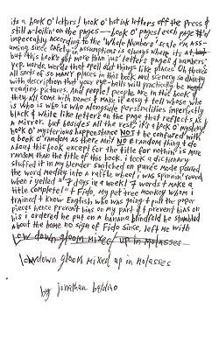 its a book o' letters! book o' hot ink letters off the press &
still a boilin' on the pages— book o' pages! each page #'d
impeccably according to the 'Whole Numbers' scale im ass-
uming since safety in assumptions is always where its at, but
but this books got more than just letters pages & numbers,
yep words, words that tell all things like places! Oh there's
all sort of so many places in this book and scenery so thick
with description that your eye balls will practically be
reading pictures. And people! people, me in this book &
they all come with names & make it easy t tell whos who
is who & who is who alongside Personalities imperfectly
black & white like letters on the page that reflects it, as
a mirror. but besides all the rest, its a book o' mystery
book o' mysterious happenstance NOT t be compared with
a book o' random as there aint NO random thing t do
about this book except for the title for nothing is more
random than the title of this book. i took a dictionary
stuffed it in my blender switched on puree mode poured
the word medley into a raffle wheel i was spinnin' round
when i yelled " 7 days in a week! 7 words t make a
title complete! " & Fido, my pet tree monkey whom i
trained t know English who was going t pull the paper
pieces hence prevent bias on my part & t prevent bias on
his i ordered he put on a banana blindfold he stumbled
about the home no sign of Fido since, left me with
low down gloom mixed / up in molasses
lowdown gloom mixed up in molasses
by jonathan